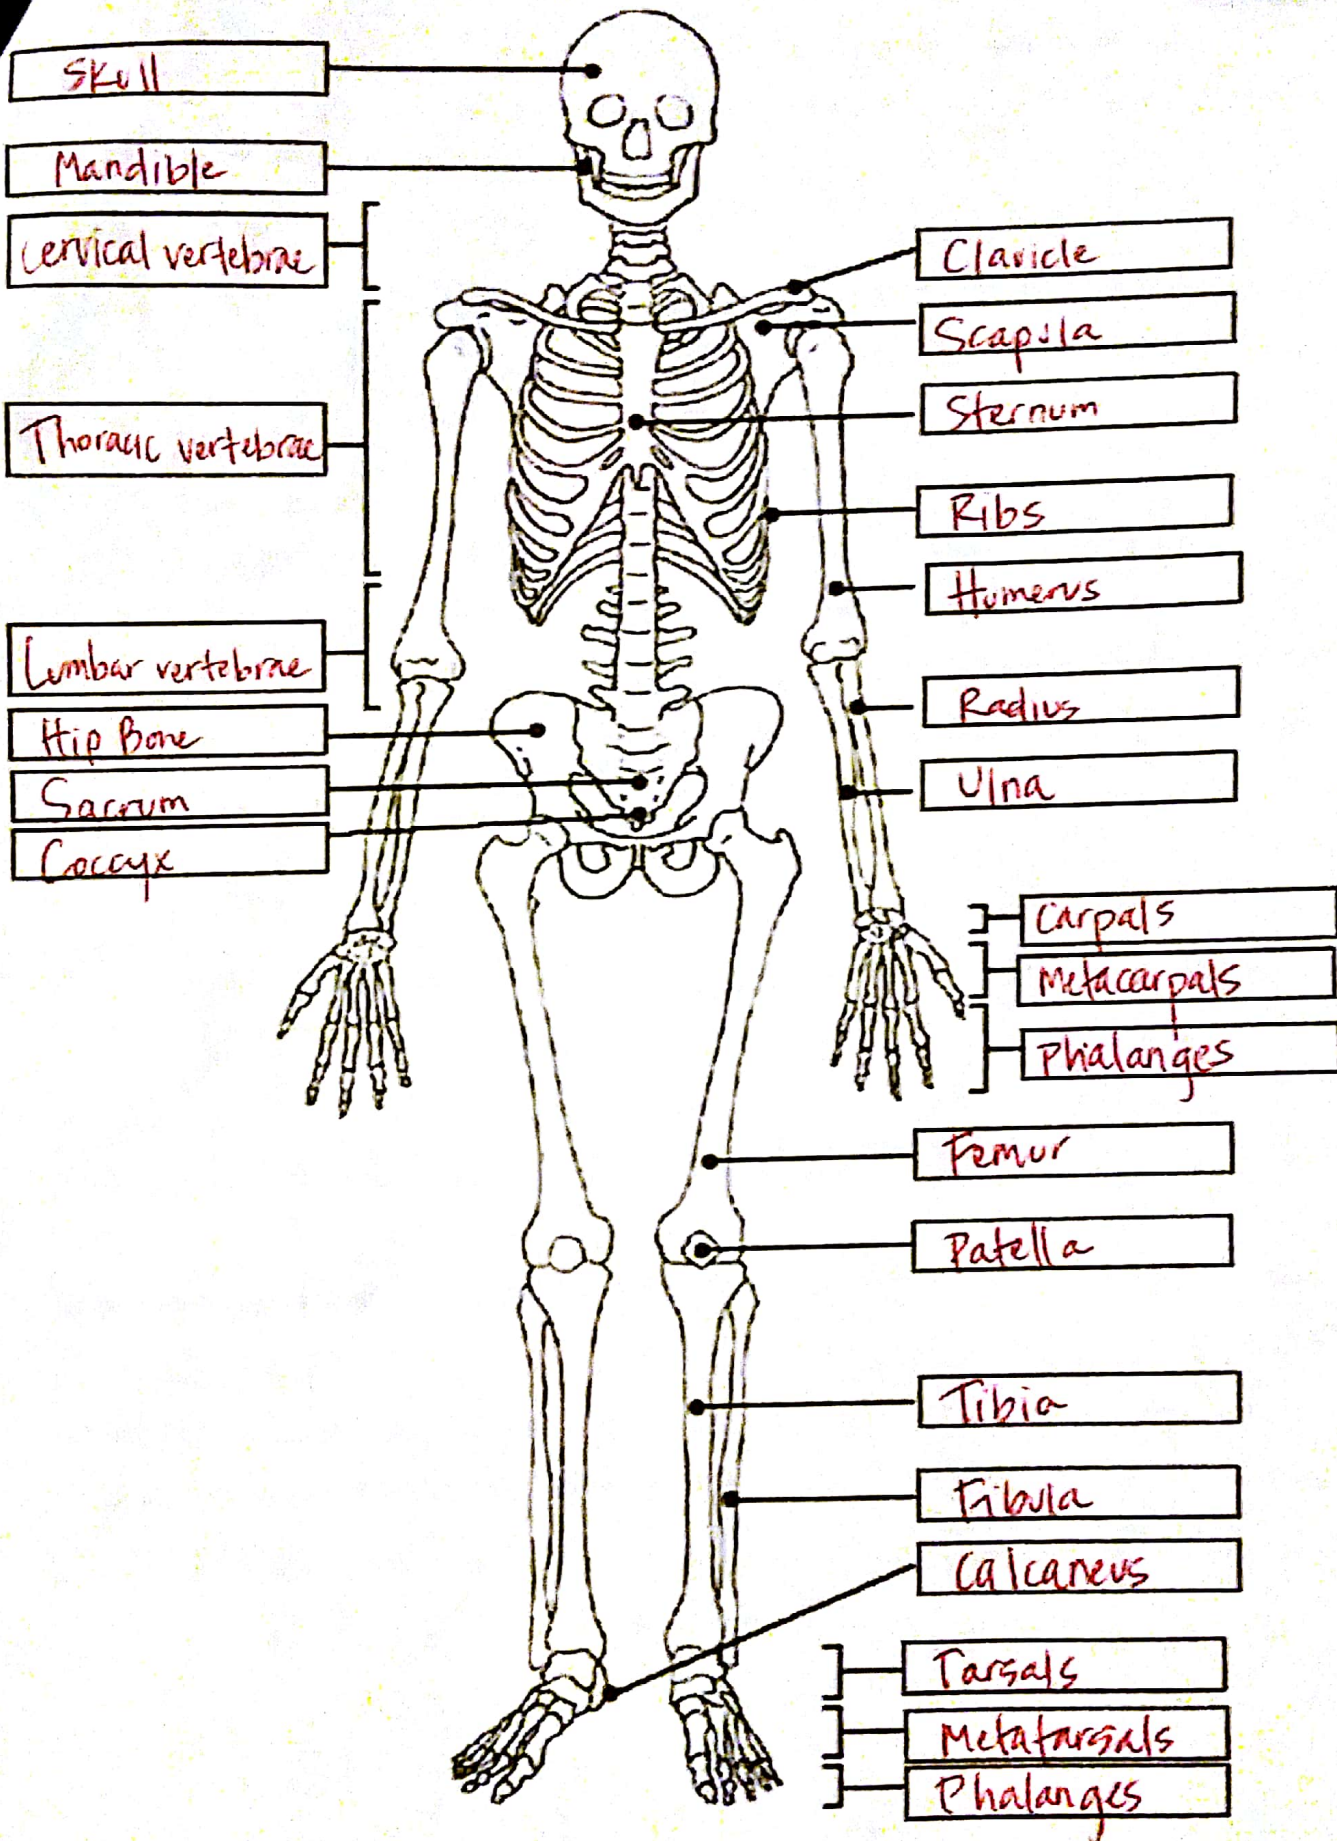 Skull
Mandible
Cervical vertebrae
Thoracic vertebrae
Lumbar vertebrae
Hip Bone
Sacrum
Coccyx
Clavicle
Scapula
Sternum
Ribs
Humerus
Radius
Ulna
Carpals
Metacarpals
Phalanges
Femur
Patella
Tibia
Fibula
Calcaneus
Tarsals
Metatarsals
Phalanges